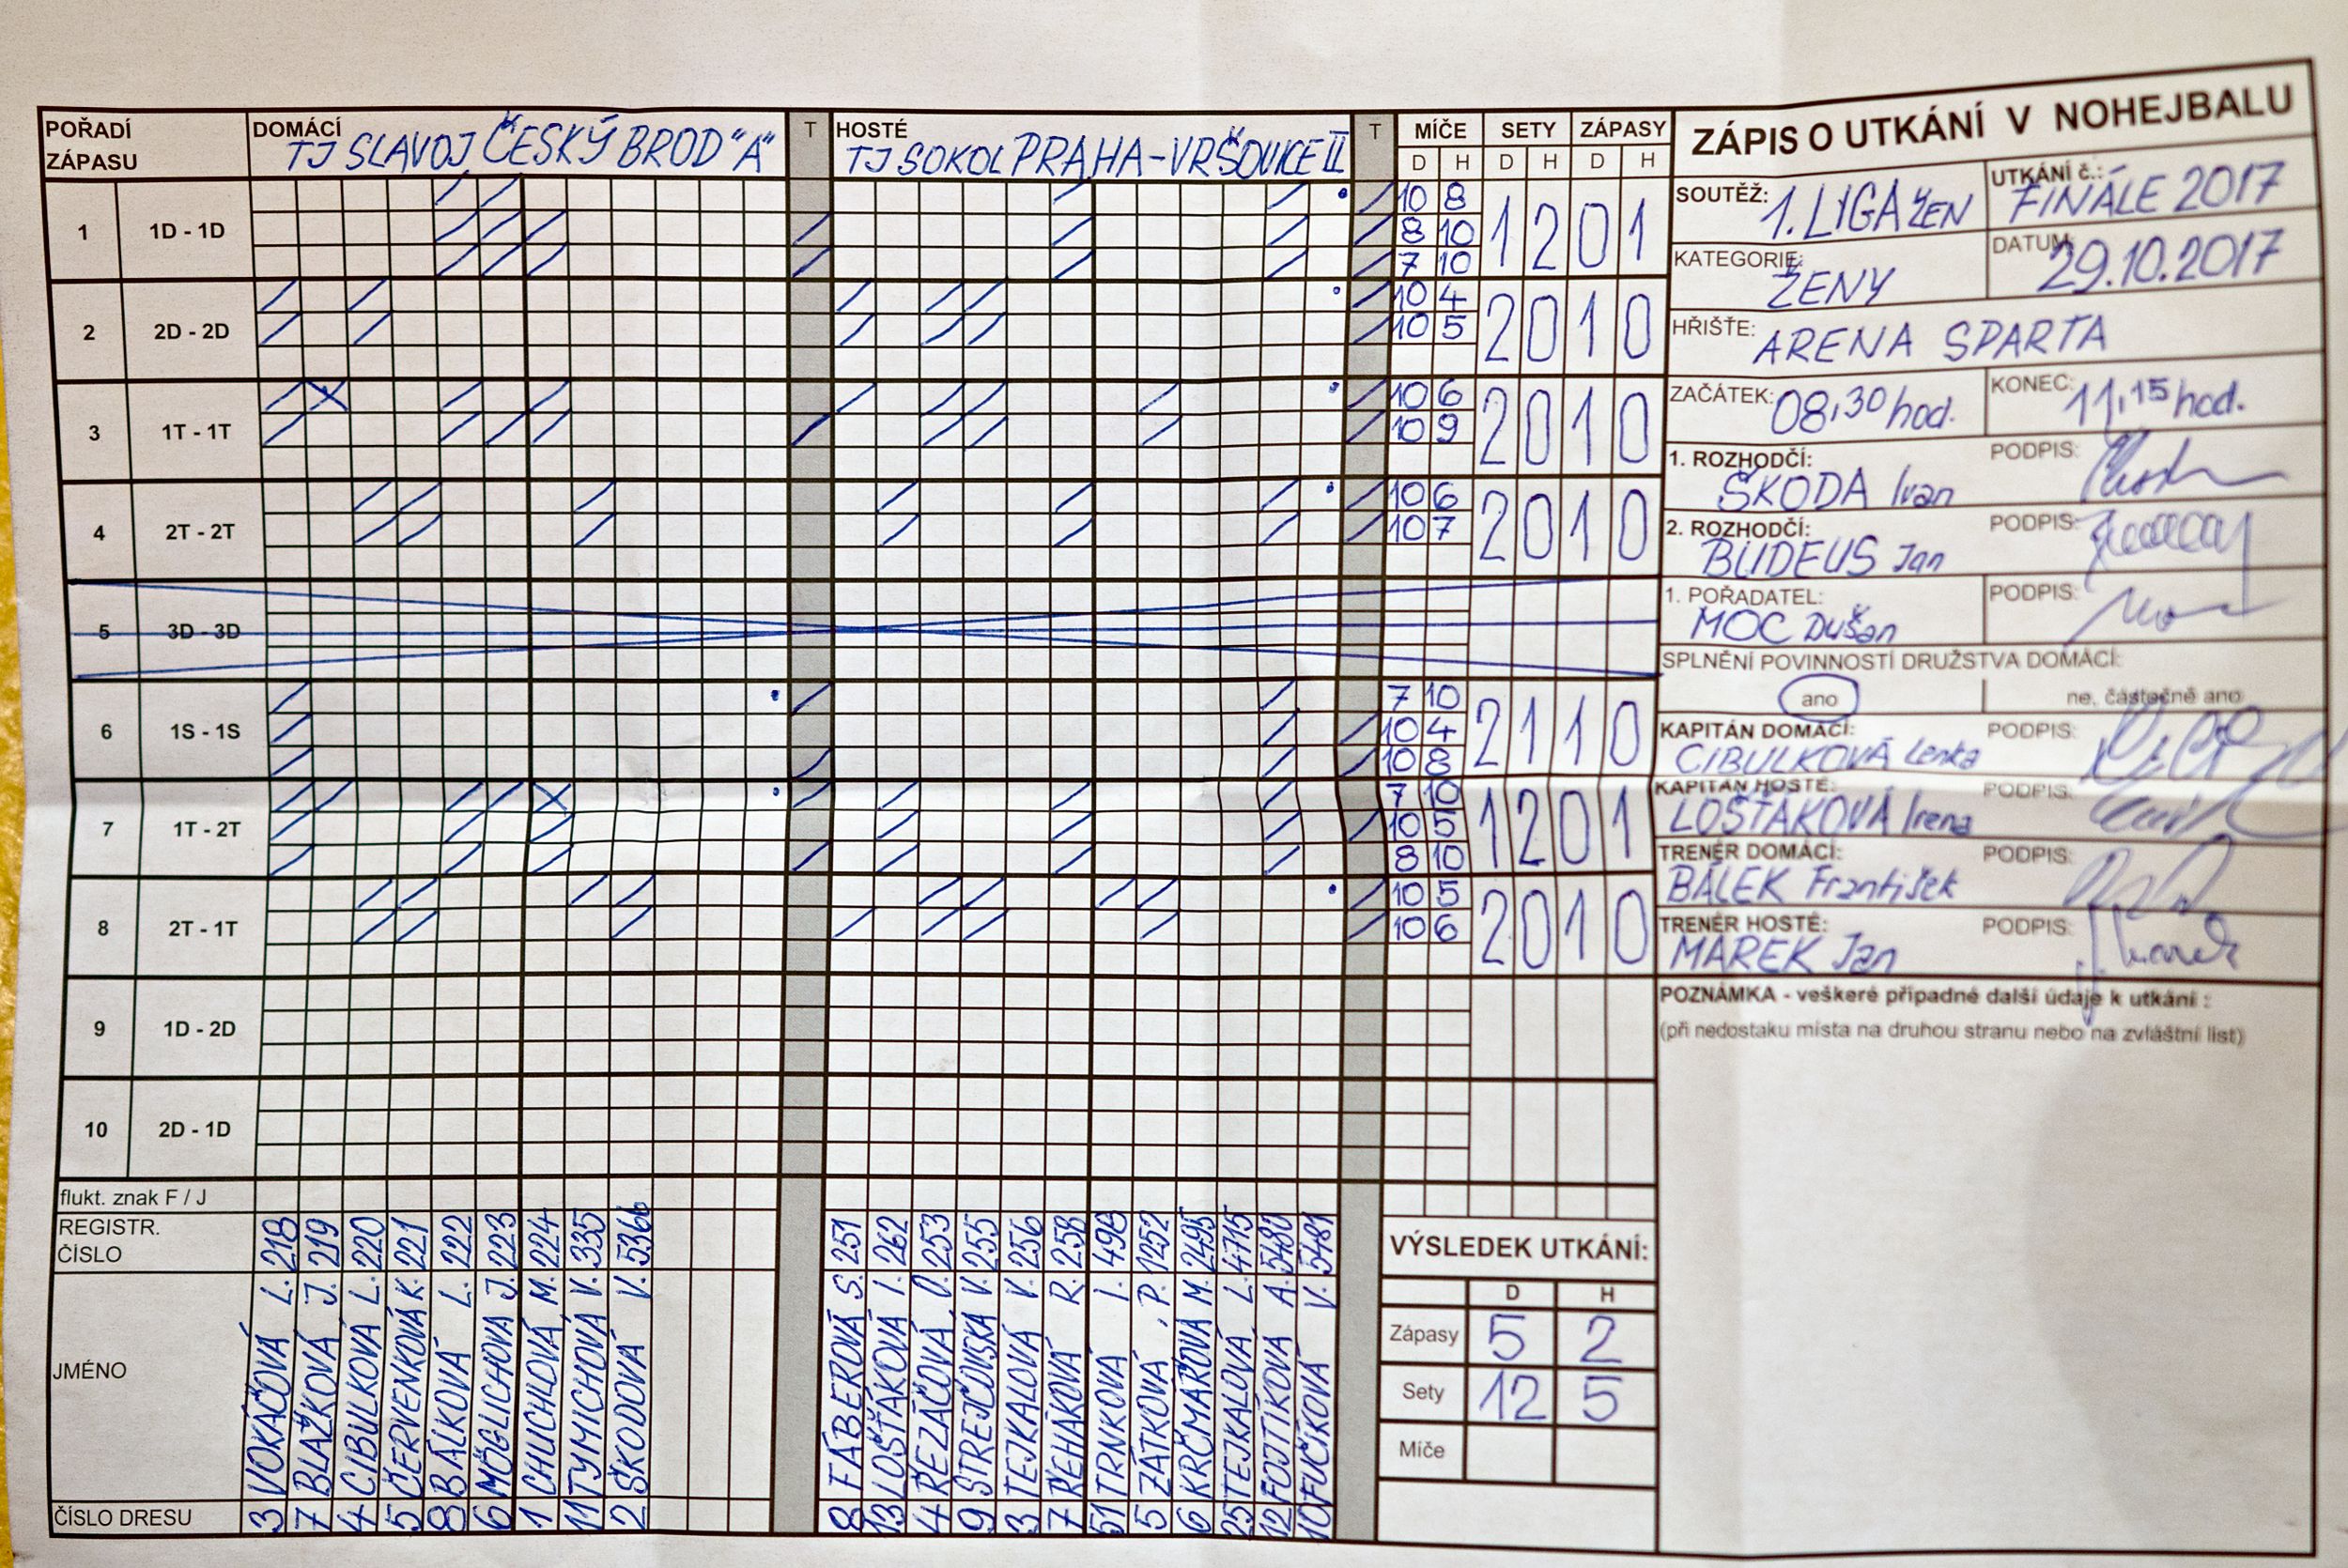 POŘADÍ ZÁPASU
DOMÁCÍ TJ SLAVOJ ČESKÝ BROD "A"
T
HOSTÉ TJ SOKOL PRAHA-VRŠOVICE II
T
MÍČE SETY ZÁPASY
D H D H D H
1 1D - 1D 10 8 1 2 0 1
8 10
7 10
2 2D - 2D 10 4 2 0 1 0
10 5
3 1T - 1T 10 6 2 0 1 0
10 9
4 2T - 2T 10 6 2 0 1 0
10 7
5 3D - 3D
6 1S - 1S 7 10 2 1 1 0
10 4
10 8
7 1T - 2T 7 10 1 2 0 1
10 5
8 10
8 2T - 1T 10 5 2 0 1 0
10 6
9 1D - 2D
10 2D - 1D
flukt. znak F / J
REGISTR. ČÍSLO
JMÉNO
ČÍSLO DRESU
3 VOKÁČOVÁ L. 218
7 BLAŽKOVÁ J. 219
4 CIBULKOVÁ L. 220
5 ČERVENKOVÁ K. 221
8 BÁLKOVÁ L. 222
6 MÖGLICHOVÁ J. 223
1 CHUCHLOVÁ M. 224
11 TYMICHOVÁ V. 335
2 ŠKODOVÁ V. 5366
8 FÁBEROVÁ S. 251
13 LOŠŤÁKOVÁ I. 262
4 ŘEZÁČOVÁ O. 253
9 STREJČOVSKÁ V. 255
3 TEJKALOVÁ V. 256
7 ŘEHÁKOVÁ R. 258
51 TRNKOVÁ I. 498
5 ZÁTKOVÁ P. 1252
6 KRČMÁŘOVÁ M. 2495
25 TEJKALOVÁ L. 4715
12 FOJTÍKOVÁ A. 5480
10 FUČÍKOVÁ V. 5481
VÝSLEDEK UTKÁNÍ:
D H
Zápasy 5 2
Sety 12 5
Míče
ZÁPIS O UTKÁNÍ V NOHEJBALU
SOUTĚŽ: 1. LIGA ŽEN
UTKÁNÍ č.: FINÁLE 2017
KATEGORIE: ŽENY
DATUM: 29.10.2017
HŘIŠTĚ: ARENA SPARTA
ZAČÁTEK: 08,30 hod.
KONEC: 11,15 hod.
1. ROZHODČÍ: ŠKODA Ivan PODPIS:
2. ROZHODČÍ: BUDEUS Jan PODPIS:
1. POŘADATEL: MOC Dušan PODPIS:
SPLNĚNÍ POVINNOSTÍ DRUŽSTVA DOMÁCÍ:
ano ne, částečně ano
KAPITÁN DOMÁCÍ: CIBULKOVÁ Lenka PODPIS:
KAPITÁN HOSTÉ: LOŠŤÁKOVÁ Irena PODPIS:
TRENÉR DOMÁCÍ: BÁLEK František PODPIS:
TRENÉR HOSTÉ: MAREK Jan PODPIS:
POZNÁMKA - veškeré případné další údaje k utkání :
(při nedostaku místa na druhou stranu nebo na zvláštní list)